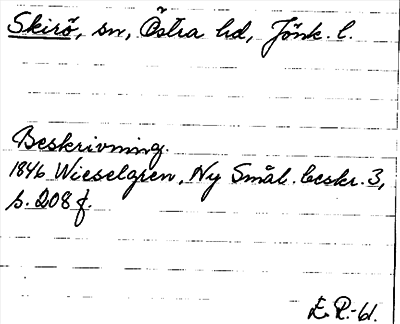 Skirö, sn, Östra hd, Jönk. l.
Beskrivning.
1846 Wieselgren, Ny Smål. beskr. 3,
s. 208 f.
E. P.-61.